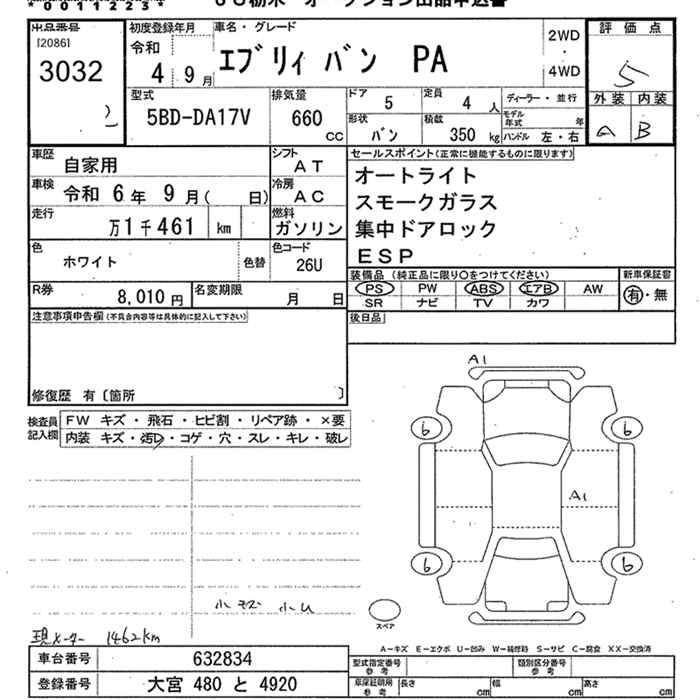 *00112235*
JU栃木 オークション出品申込書
出品番号
[2086]
3032
初度登録年月
令和
4 9月
車名・グレード
エブリィ バン PA
2WD
・
4WD
評価点
5
外装 内装
A B
型式
5BD-DA17V
排気量
660
CC
ドア
5
定員
4人
形状
バン
積載
350 kg
ディーラー・並行
モデル年式 年
ハンドル 左・右
車歴
自家用
シフト
AT
車検
令和 6年 9月( 日)
冷房
AC
走行
万1千461 km
燃料
ガソリン
色
ホワイト
色替
色コード
26U
R券
8,010円
名変期限
月 日
セールスポイント(正常に機能するものに限ります)
オートライト
スモークガラス
集中ドアロック
ESP
装備品 (純正品に限り○をつけてください)
PS PW ABS エアB AW
SR ナビ TV カワ
新車保証書
有・無
後日品
注意事項申告欄(不具合内容等は具体的に記入して下さい)
修復歴 有〔箇所 〕
検査員
記入欄
FW キズ・飛石・ヒビ割・リペア跡・×要
内装 キズ・汚レ・コゲ・穴・スレ・キレ・破レ
A1
6 6
A1
6 6
スペア
小キズ 小U
現メーター 1462km
A−キズ E−エクボ U−凹み W−補修跡 S−サビ C−腐食 XX−交換済
車台番号 632834
登録番号 大宮 480 と 4920
型式指定番号
参考
類別区分番号
参考
車庫証明用
参考
長さ cm 幅 cm 高さ cm